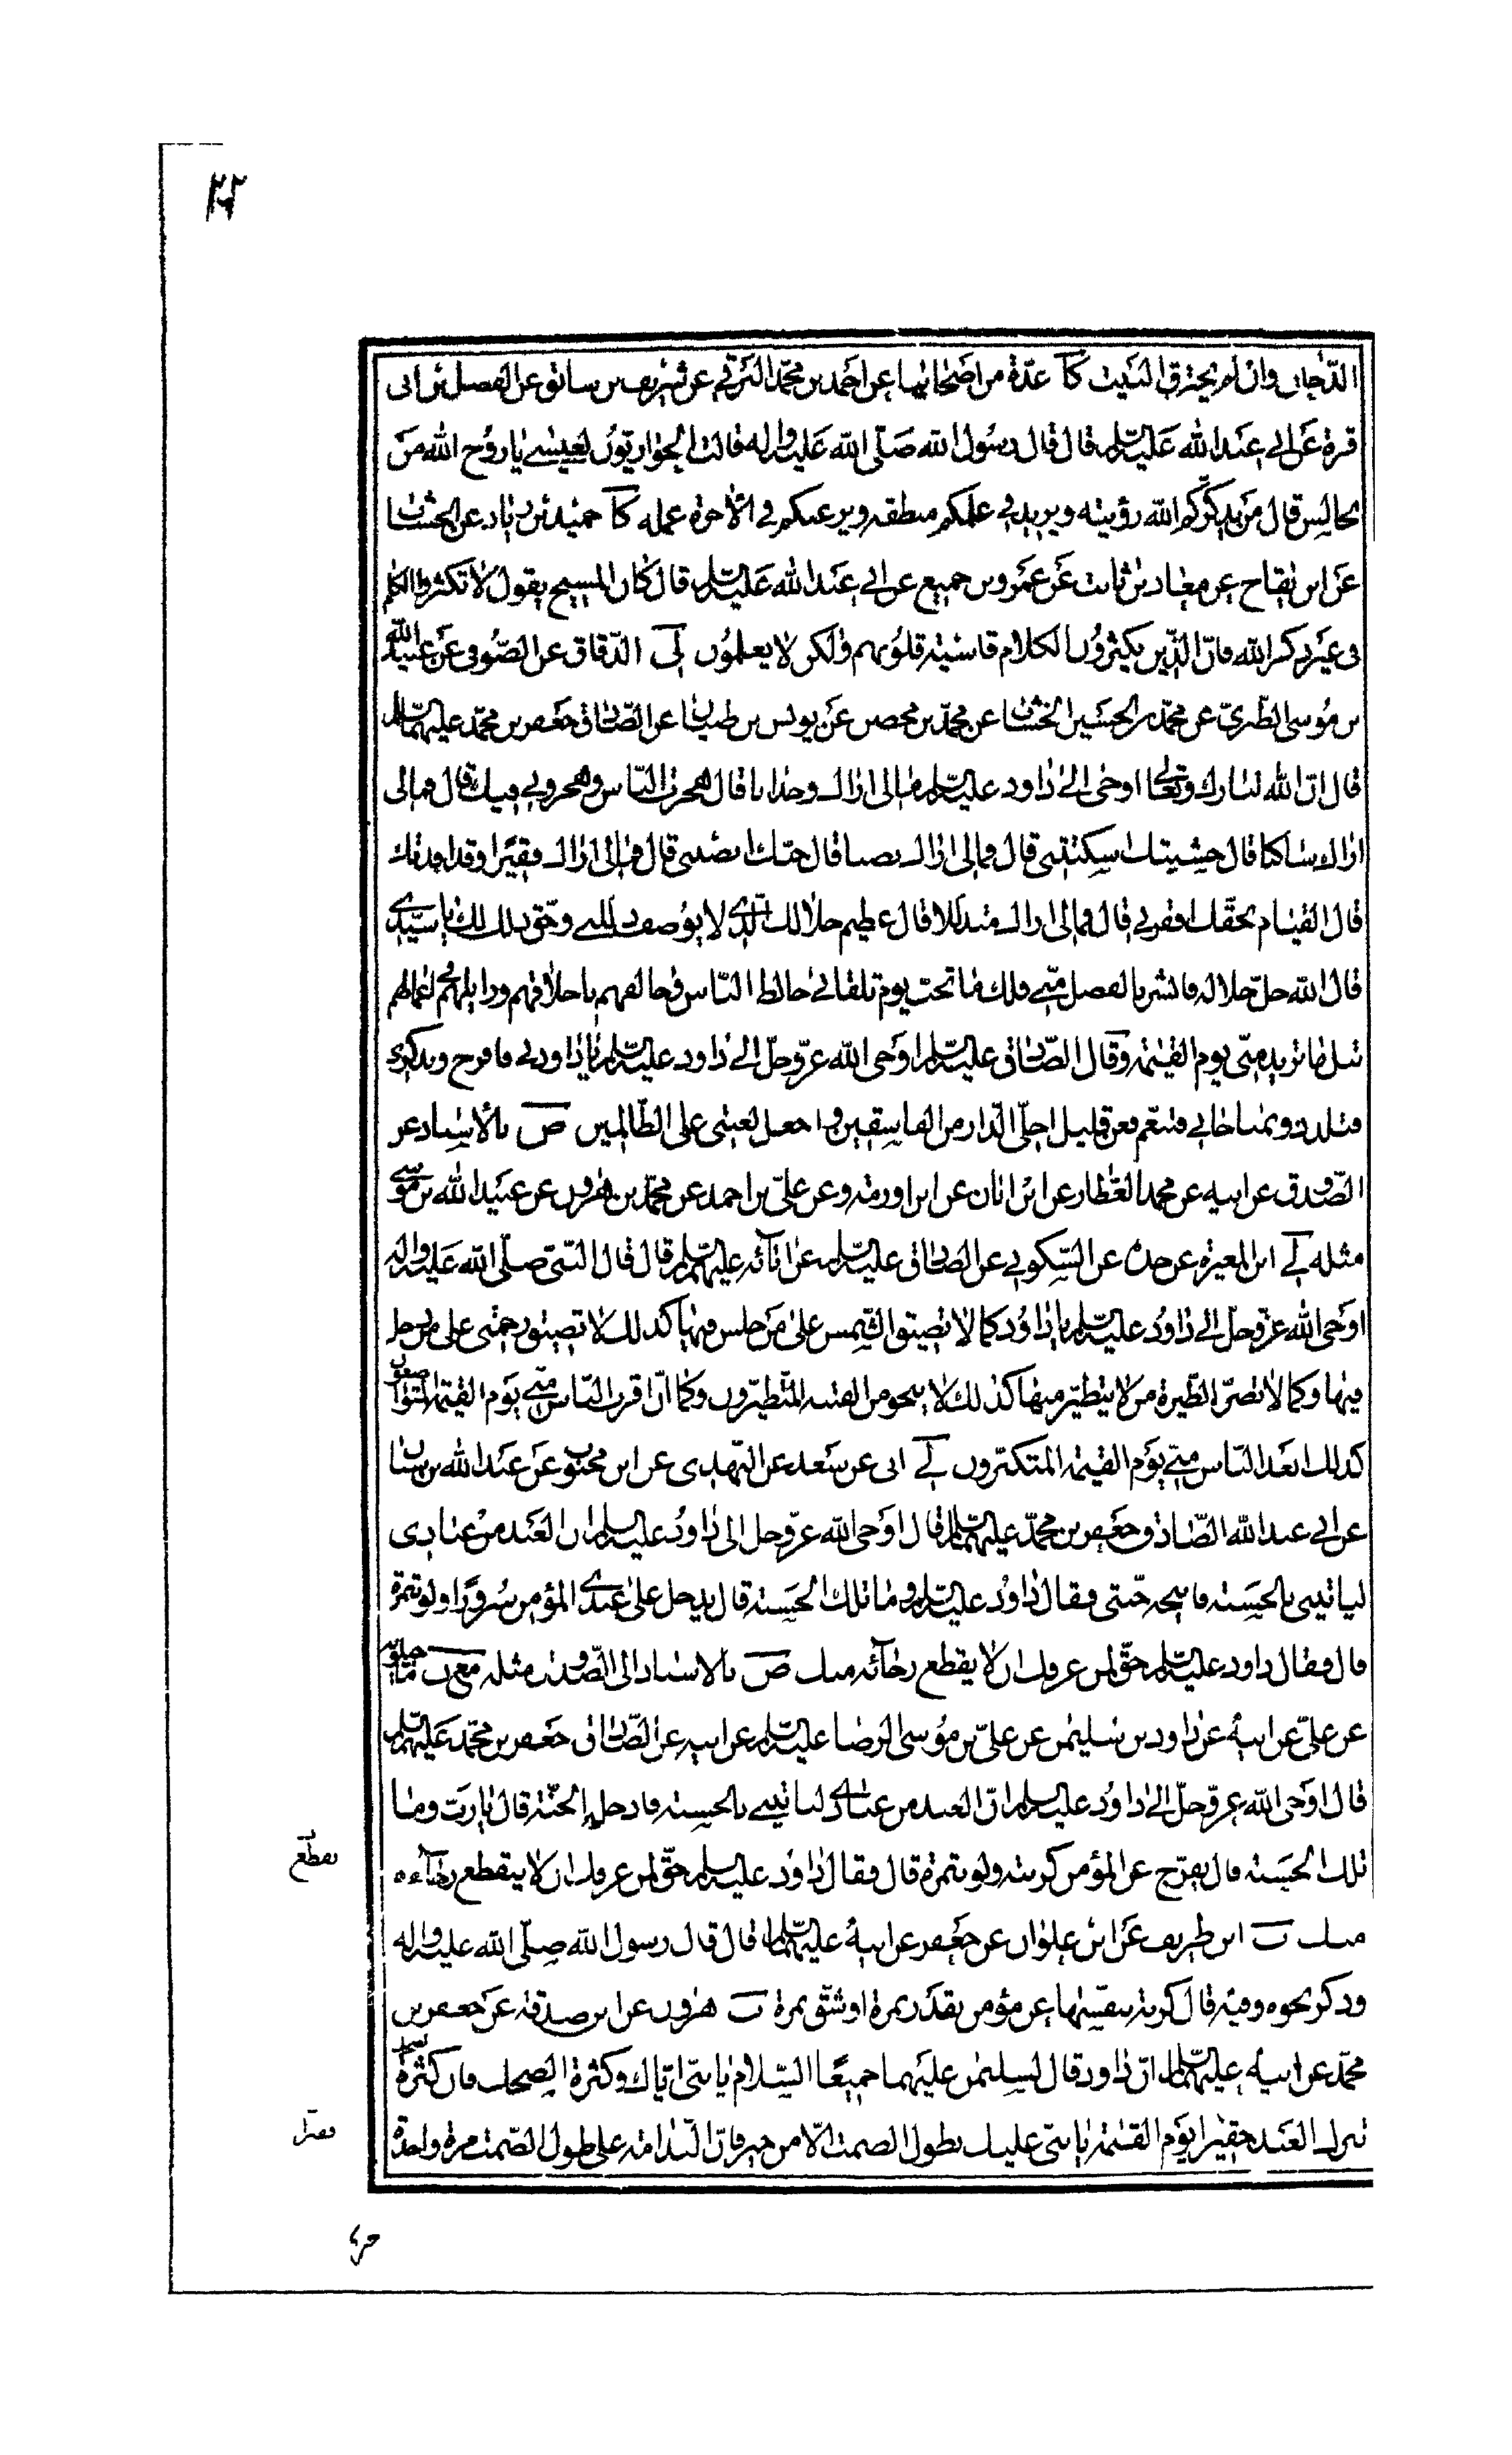 الدّخان وان لم يحترق البيت كا عدّة من اصحابنا عن احمد بن محمّد البرقي عن شريف بن سابق عن الفضل بن ابى
قرة عن ابي عبد الله عليه السّلم قال قال رسول الله صلّى الله عليه واله قالت الحواريّون لعيسى يا روح الله من
نجالس قال من يذكّركم الله رؤيته ويزيد في علمكم منطقه ويرغبكم في الاخرة عمله كا حميد بن زياد عن الخشاب
عن ابن بقاح عن معاذ بن ثابت عن عمرو بن جميع عن ابي عبد الله عليه السّلم قال كان المسيح يقول لا تكثروا الكلام
في غير ذكر الله فانّ الّذين يكثرون الكلام قاسية قلوبهم ولكن لا يعلمون لي الدّقاق عن الصّوفي عن عبيد الله
بن موسى الطبرىّ عن محمّد بن الحسين الخشاب عن محمّد بن محصن عن يونس بن ظبيان عن الصّادق جعفر بن محمّد عليهما السلم
قال انّ الله تبارك وتعالى اوحى الى داود عليه السّلم مالى اراك وحدانا قال هجرت النّاس وهجروني فيك قال فمالى
اراك ساكتا قال خشيتك اسكتتنى قال ومالى اراك نصبا قال حبّك انصبنى قال فمالى اراك فقيرا وقد افدتك
قال القيام بحقّك افقرني قال فمالى اراك متذللا قال عظيم جلالك الّذى لا يوصف ذللنى وحقّ ذلك لك يا سيّدى
قال الله جلّ جلاله فابشر بالفضل منّى فلك ما تحبّ يوم تلقاني خالط النّاس وخالقهم باخلاقهم وزايلهم في اعمالهم
تنل ما تريد منّى يوم القيمة وقال الصّادق عليه السّلم اوحى الله عزّ وجلّ الى داود عليه السّلم يا داود بى فافرح وبذكرى
فتلذذ وبمناجاتي فتنعّم فعن قليل اخلّى الدّار من الفاسقين واجعل لعنتى على الظّالمين ص بالاسناد عن
الصّدوق عن ابيه عن محمد العطار عن ابن ابان عن ابن اورمة وعن علىّ بن احمد عن محمّد بن هرون عن عبيد الله بن موسى
مثله لى ابن المغيرة عن جدّه عن السّكوني عن الصّادق عليه السّلم عن ابآئه عليهم السّلم قال قال النّبىّ صلّى الله عليه واله
اوحى الله عزّ وجلّ الى داود عليه السّلم يا داود كما لا تضيق الشّمس على من جلس فيها كذلك لا تضيق رحمتى على من دخل
فيها وكما لا تضرّ الطّيرة من لا يتطيّر منها كذلك لا ينجو من الفتنة المتطيّرون وكما انّ اقرب النّاس منّى يوم القيمة المتواضعون
كذلك ابعد النّاس منّى يوم القيمة المتكبّرون لى ابى عن سعد عن النّهدى عن ابن محبوب عن عبد الله بن سنان
عن ابي عبد الله الصّادق جعفر بن محمّد عليهما السّلم قال اوحى الله عزّ وجل الى داود عليه السلم ان العبد من عبادى
ليأتيني بالحسنة فابيحه جنّتى فقال داود عليه السّلم وما تلك الحسنة قال يدخل على عبدى المؤمن سرورا ولو بتمرة
قال فقال داود عليه السّلم حقّ لمن عرفك ان لا يقطع رجائه منك ص بالاسناد الى الصّدوق مثله مع ن ماجيلويه
عن علىّ عن ابيه عن داود بن سليمن عن علىّ بن موسى الرضا عليه السّلم عن ابيه عن الصّادق جعفر بن محمّد عليهما السّلم
قال اوحى الله عزّ وجلّ الى داود عليه السلم انّ العبد من عبادى ليأتيني بالحسنة فادخله الجنّة قال يا ربّ وما
تلك الحسنة قال يفرّج عن المؤمن كربته ولو بتمرة قال فقال داود عليه السلم حقّ لمن عرفك ان لا ينقطع رجآءه
منك ب ابن طريف عن ابن علوان عن جعفر عن ابيه عليهما السّلم قال قال رسول الله صلّى الله عليه واله
وذكر نحوه وفيه قال كربة ينفسها عن مؤمن بقدر تمرة او شقّ تمرة ب هرون عن ابن صدقة عن جعفر بن
محمّد عن ابيه عليهما السّلم انّ داود قال لسليمن عليهما جميعًا السّلام يا بنى ايّاك وكثرة الضحك فان كثرة
تترك العبد حقيرا يوم القيمة يا بنى عليك بطول الصمت الّا من خير فانّ النّدامة على طول الصّمت مرة واحدة